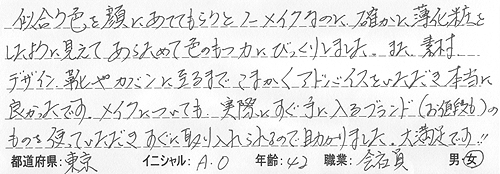 似合う色を顔にあててもらうと ノーメイクなのに、確かに薄化粧を
したように見えて あらためて色のもつ力に びっくりしました。また、素材
デザイン、靴やカバンに至るまで、こまかくアドバイスをいただき本当に
良かったです。メイクについても、実際にすぐ手に入るブランド(お値段も)の
ものを使っていただき すぐに取り入れられるので助かりました。大満足です!!
都道府県:東京 イニシャル:A.O 年齢:42 職業:会社員 男・女